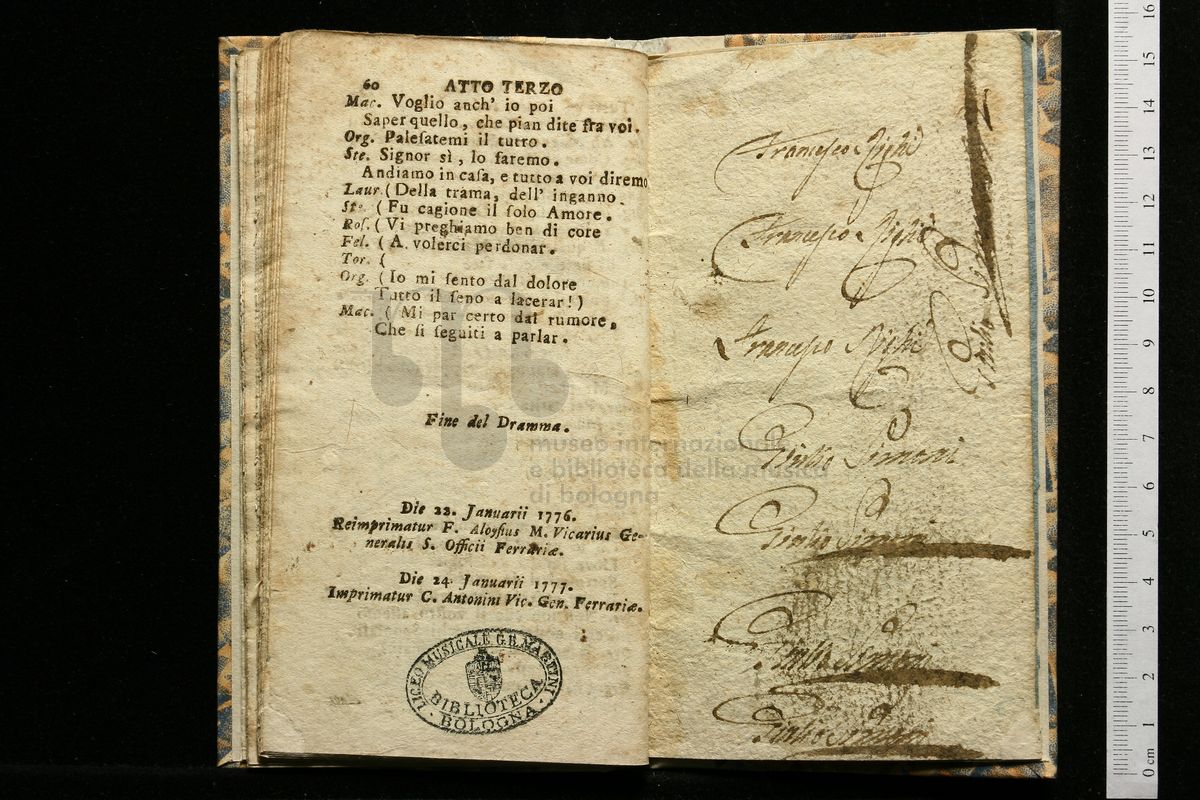 60 ATTO TERZO
Mac. Voglio anch' io poi
Saper quello, che pian dite fra voi.
Org. Paleſatemi il tutto.
Ste. Signor sì, lo faremo.
Andiamo in caſa, e tutto a voi diremo
Laur. (Della trama, dell' inganno.
Ste. (Fu cagione il ſolo Amore.
Roſ. (Vi preghiamo ben di core
Fel. (A volerci perdonar.
Tor. {
Org. (Io mi ſento dal dolore
Tutto il ſeno a lacerar!)
Mac. (Mi par certo dal rumore,
Che ſi ſeguiti a parlar.
Fine del Dramma.
Die 22. Januarii 1776.
Reimprimatur F. Aloyſius M. Vicarius Ge-
neralis S. Officii Ferrariæ.
Die 24. Januarii 1777.
Imprimatur C. Antonini Vic. Gen. Ferrariæ.
LICEO MUSICALE G.B. MARTINI
BIBLIOTECA
· BOLOGNA ·
museo internazionale
e biblioteca della musica
di bologna
Francesco Righi
Francesco Righi
Francesco Righi
Giulio Simoni
Giulio Simoni
Giulio Simoni
Giulio Simoni
Giulio
16
15
14
13
12
11
10
9
8
7
6
5
4
3
2
1
0 cm